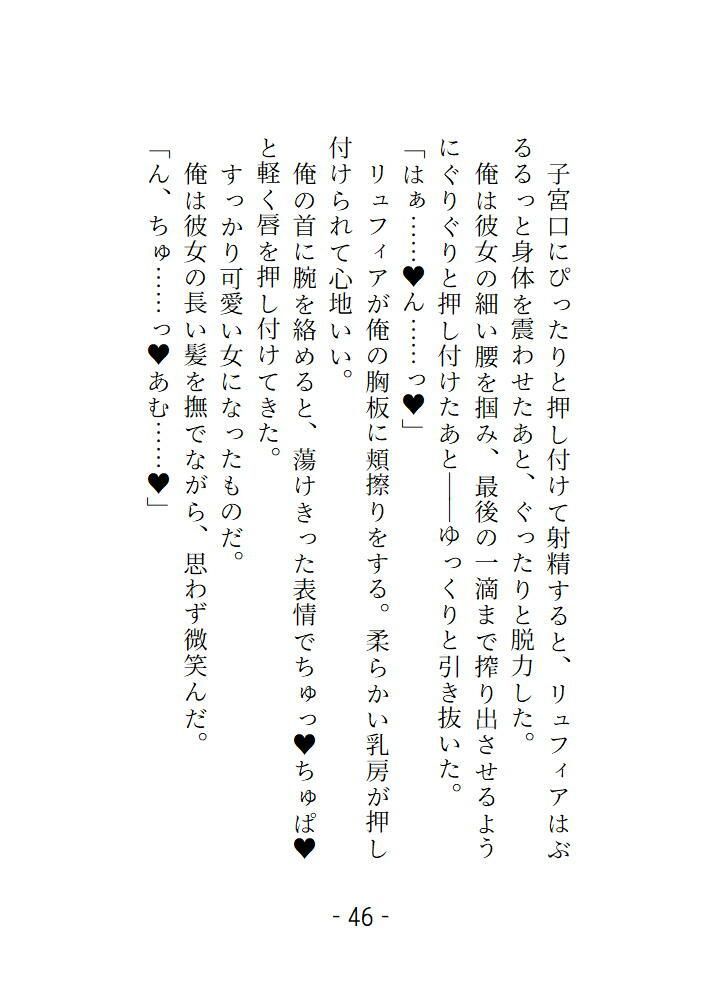 子宮口にぴったりと押し付けて射精すると、リュフィアはぶ
るるっと身体を震わせたあと、ぐったりと脱力した。
俺は彼女の細い腰を掴み、最後の一滴まで搾り出させるよう
にぐりぐりと押し付けたあと――ゆっくりと引き抜いた。
「はぁ……♥ん……っ♥」
リュフィアが俺の胸板に頬擦りをする。柔らかい乳房が押し
付けられて心地いい。
俺の首に腕を絡めると、蕩けきった表情でちゅっ♥ちゅぱ♥
と軽く唇を押し付けてきた。
すっかり可愛い女になったものだ。
俺は彼女の長い髪を撫でながら、思わず微笑んだ。
「ん、ちゅ……っ♥あむ……♥」
- 46 -